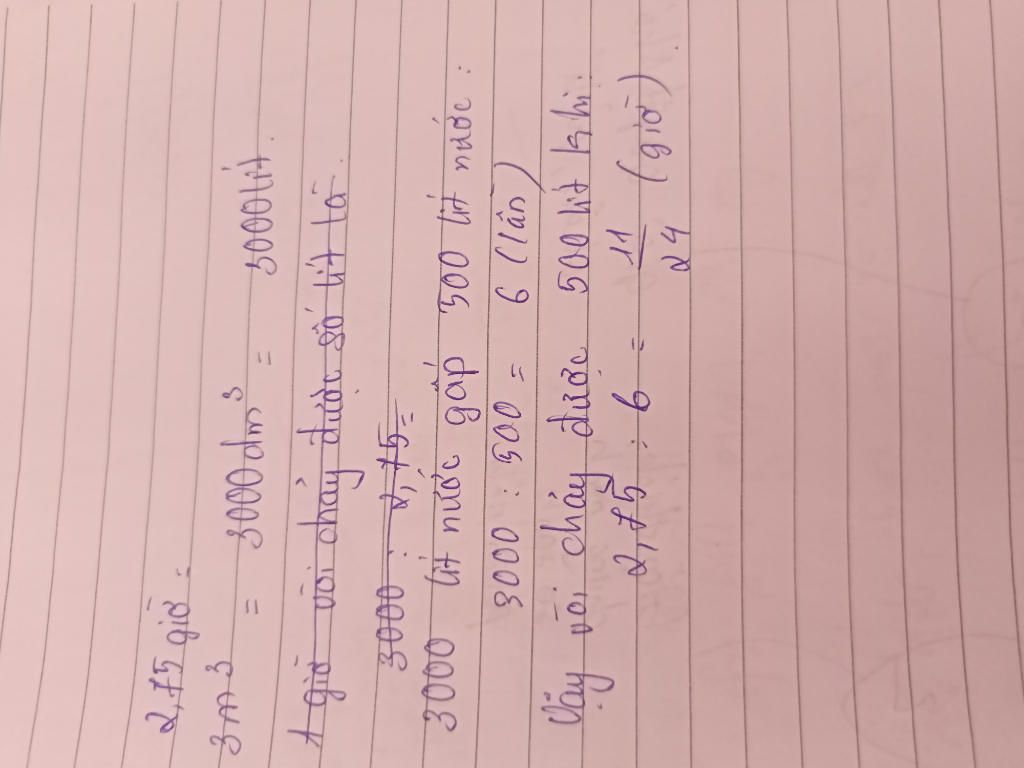 2,75 giờ =
3m³ = 3000dm³ = 3000lít.
1 giờ vòi chảy được số lít là
3000 : 2,75 =
3000 lít nước gấp 500 lít nước :
3000 : 500 = 6 (lần)
Vậy vòi chảy được 500 lít khi:
2,75 : 6 = 11/24 (giờ).